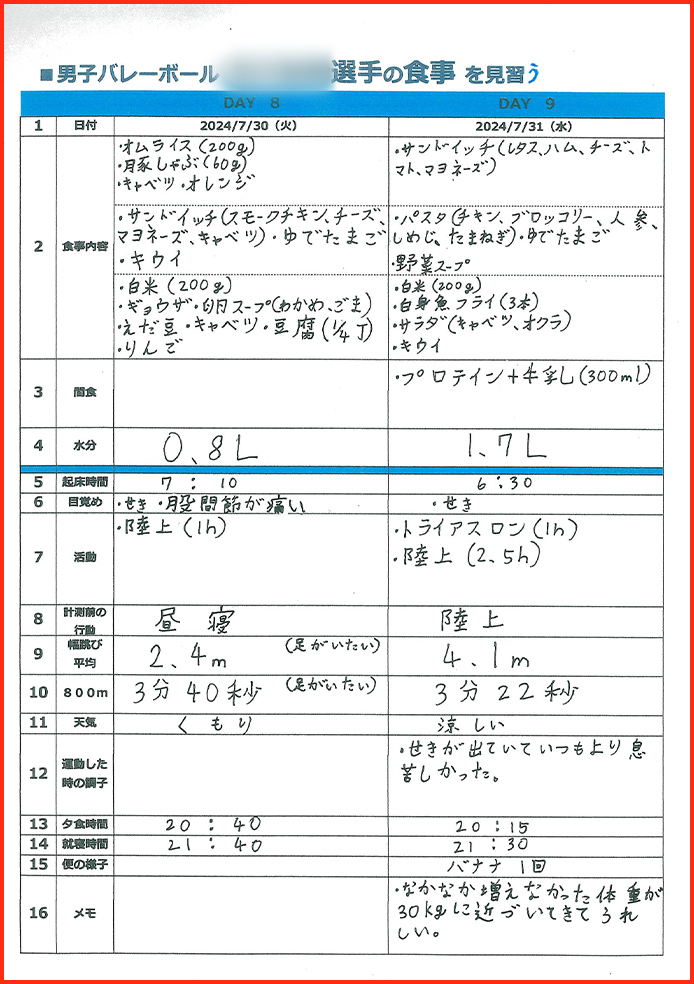 ■男子バレーボール 選手の食事 を見習う
DAY 8 DAY 9
1 日付 2024/7/30(火) 2024/7/31(水)
2 食事内容
・オムライス(200g)
・豚しゃぶ(60g)
・キャベツ・オレンジ
・サンドイッチ(スモークチキン、チーズ、
マヨネーズ、キャベツ)・ゆでたまご
・キウイ
・白米(200g)
・ギョウザ・卵スープ(わかめ、ごま)
・えだ豆・キャベツ・豆腐(1/4丁)
・りんご
・サンドイッチ(レタス、ハム、チーズ、ト
マト、マヨネーズ)
・パスタ(チキン、ブロッコリー、人参、
しめじ、たまねぎ)・ゆでたまご
・野菜スープ
・白米(200g)
・白身魚フライ(3本)
・サラダ(キャベツ、オクラ)
・キウイ
3 間食 ・プロテイン+牛乳(300ml)
4 水分 0.8L 1.7L
5 起床時間 7:10 6:30
6 目覚め ・せき・股間節が痛い ・せき
7 活動
・陸上(1h)
・トライアスロン(1h)
・陸上(2.5h)
8 計測前の
行動
昼寝 陸上
9 幅跳び
平均
2.4m (足がいたい) 4.1m
10 800m 3分40秒 (足がいたい) 3分22秒
11 天気 くもり 涼しい
12 運動した
時の調子
・せきが出ていていつもより息
苦しかった。
13 夕食時間 20:40 20:15
14 就寝時間 21:40 21:30
15 便の様子 バナナ1回
16 メモ
・なかなか増えなかった体重が
30kgに近づいてきてうれ
しい。